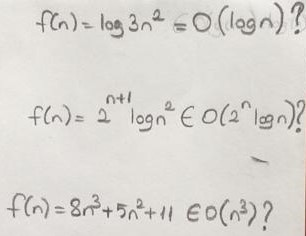 f(n) = log 3n² = O(log n)?
f(n) = 2ⁿ⁺¹ log n² ∈ O(2ⁿ log n)?
f(n) = 8n³ + 5n² + 11 ∈ O(n³)?